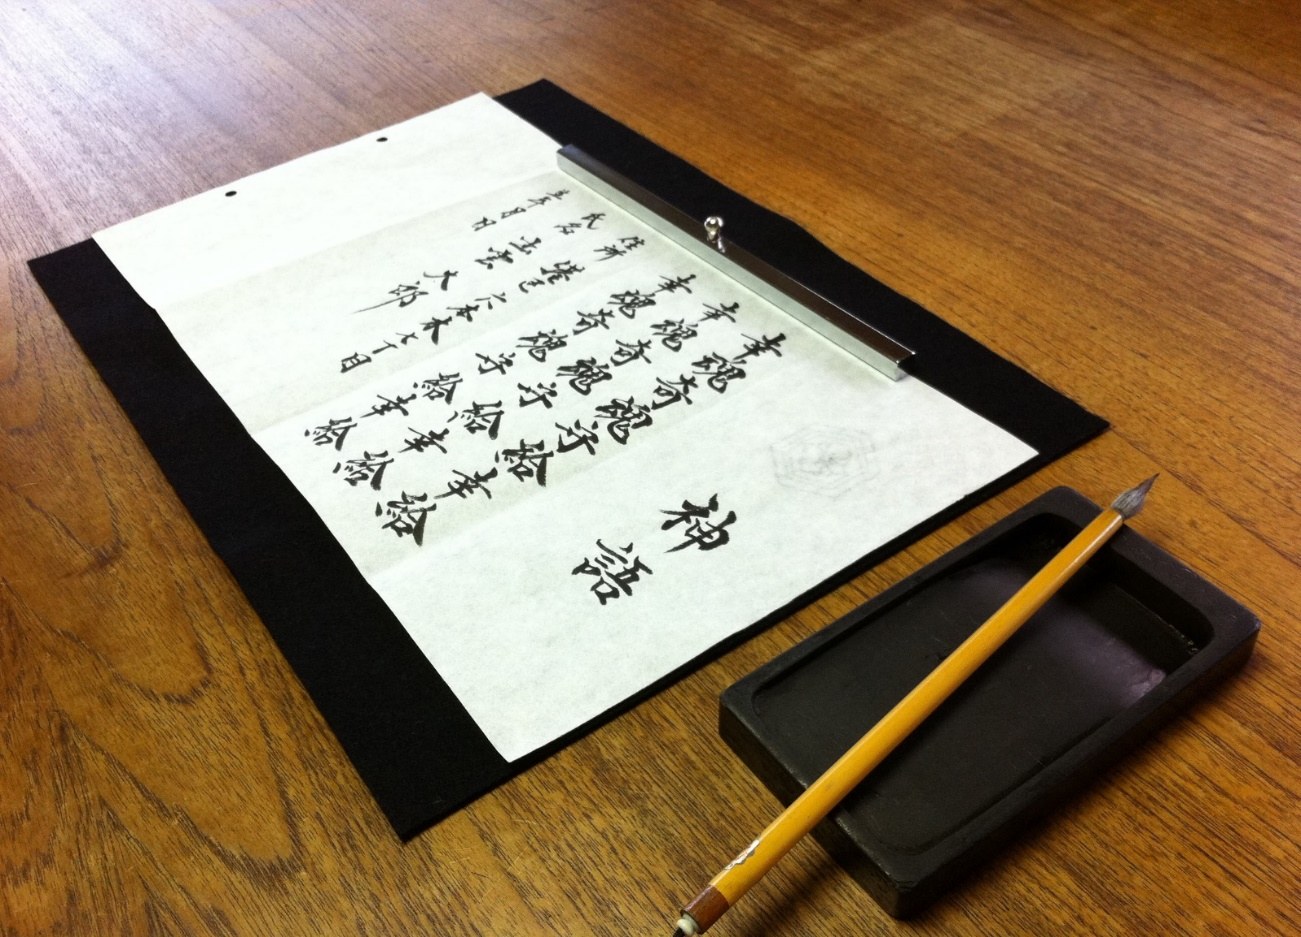 神語
幸魂奇魂守給幸給
幸魂奇魂守給幸給
幸魂奇魂守給幸給
住所
氏名 出雲 大郎
生年月日